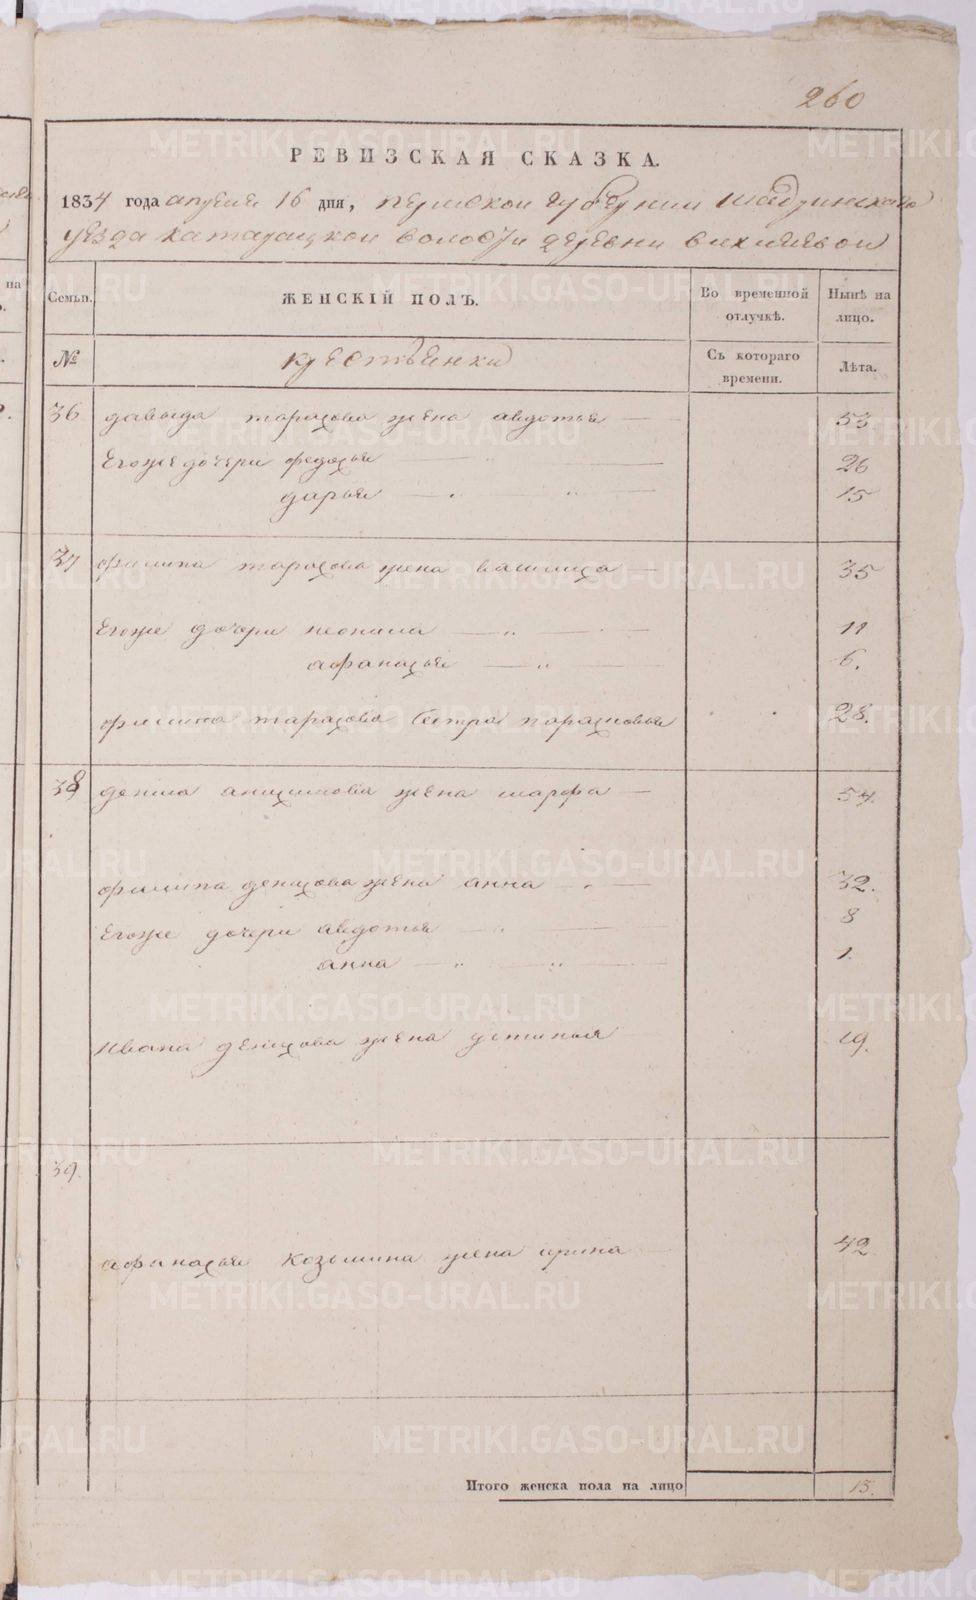 260
РЕВИЗСКАЯ СКАЗКА.
1834 года апреля 16 дня, пермской губернии шадринскаго
уезда катарацкой волости деревни
Семьи. ЖЕНСКІЙ ПОЛЪ. Во временной отлучкѣ. Нынѣ на лицо.
№ крестьянки Съ котораго времени. Лѣта.
36 давыда тарасова жена авдотья 53
Егоже дочери федосья 26
дарья 15
37 филипа тарасова жена василиса 35
Егоже дочери неонила 11
афанасья 6.
филипа тарасова сестра парасковья 28.
38 дениса анисимова жена марфа 54.
филипа денисова жена анна 32.
Егоже дочери авдотья 8
анна 1.
Ивана денисова жена устинья 19.
39.
афанасья козьмина жена ирина 42
Итого женска пола на лицо 13.
METRIKI.GASO-URAL.RU